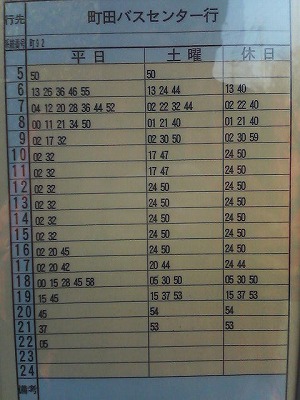 行先 町田バスセンター行
系統番号 町52
平日 土曜 休日
5 50 50
6 13 26 36 46 55 13 24 44 13 40
7 04 12 20 28 36 44 52 02 22 32 44 02 22 40
8 00 11 21 34 50 01 21 40 01 21 40
9 02 17 32 02 30 50 02 30 59
10 02 32 17 47 24 50
11 02 32 17 47 24 50
12 02 32 24 50 24 50
13 02 32 24 50 24 50
14 02 32 24 50 24 50
15 02 32 24 50 24 50
16 02 20 45 24 50 24 50
17 02 20 42 20 44 24 44
18 00 15 28 45 58 05 30 50 05 30 50
19 15 45 15 37 53 15 37 53
20 45 54 54
21 37 53 53
22 05
23
24
備考